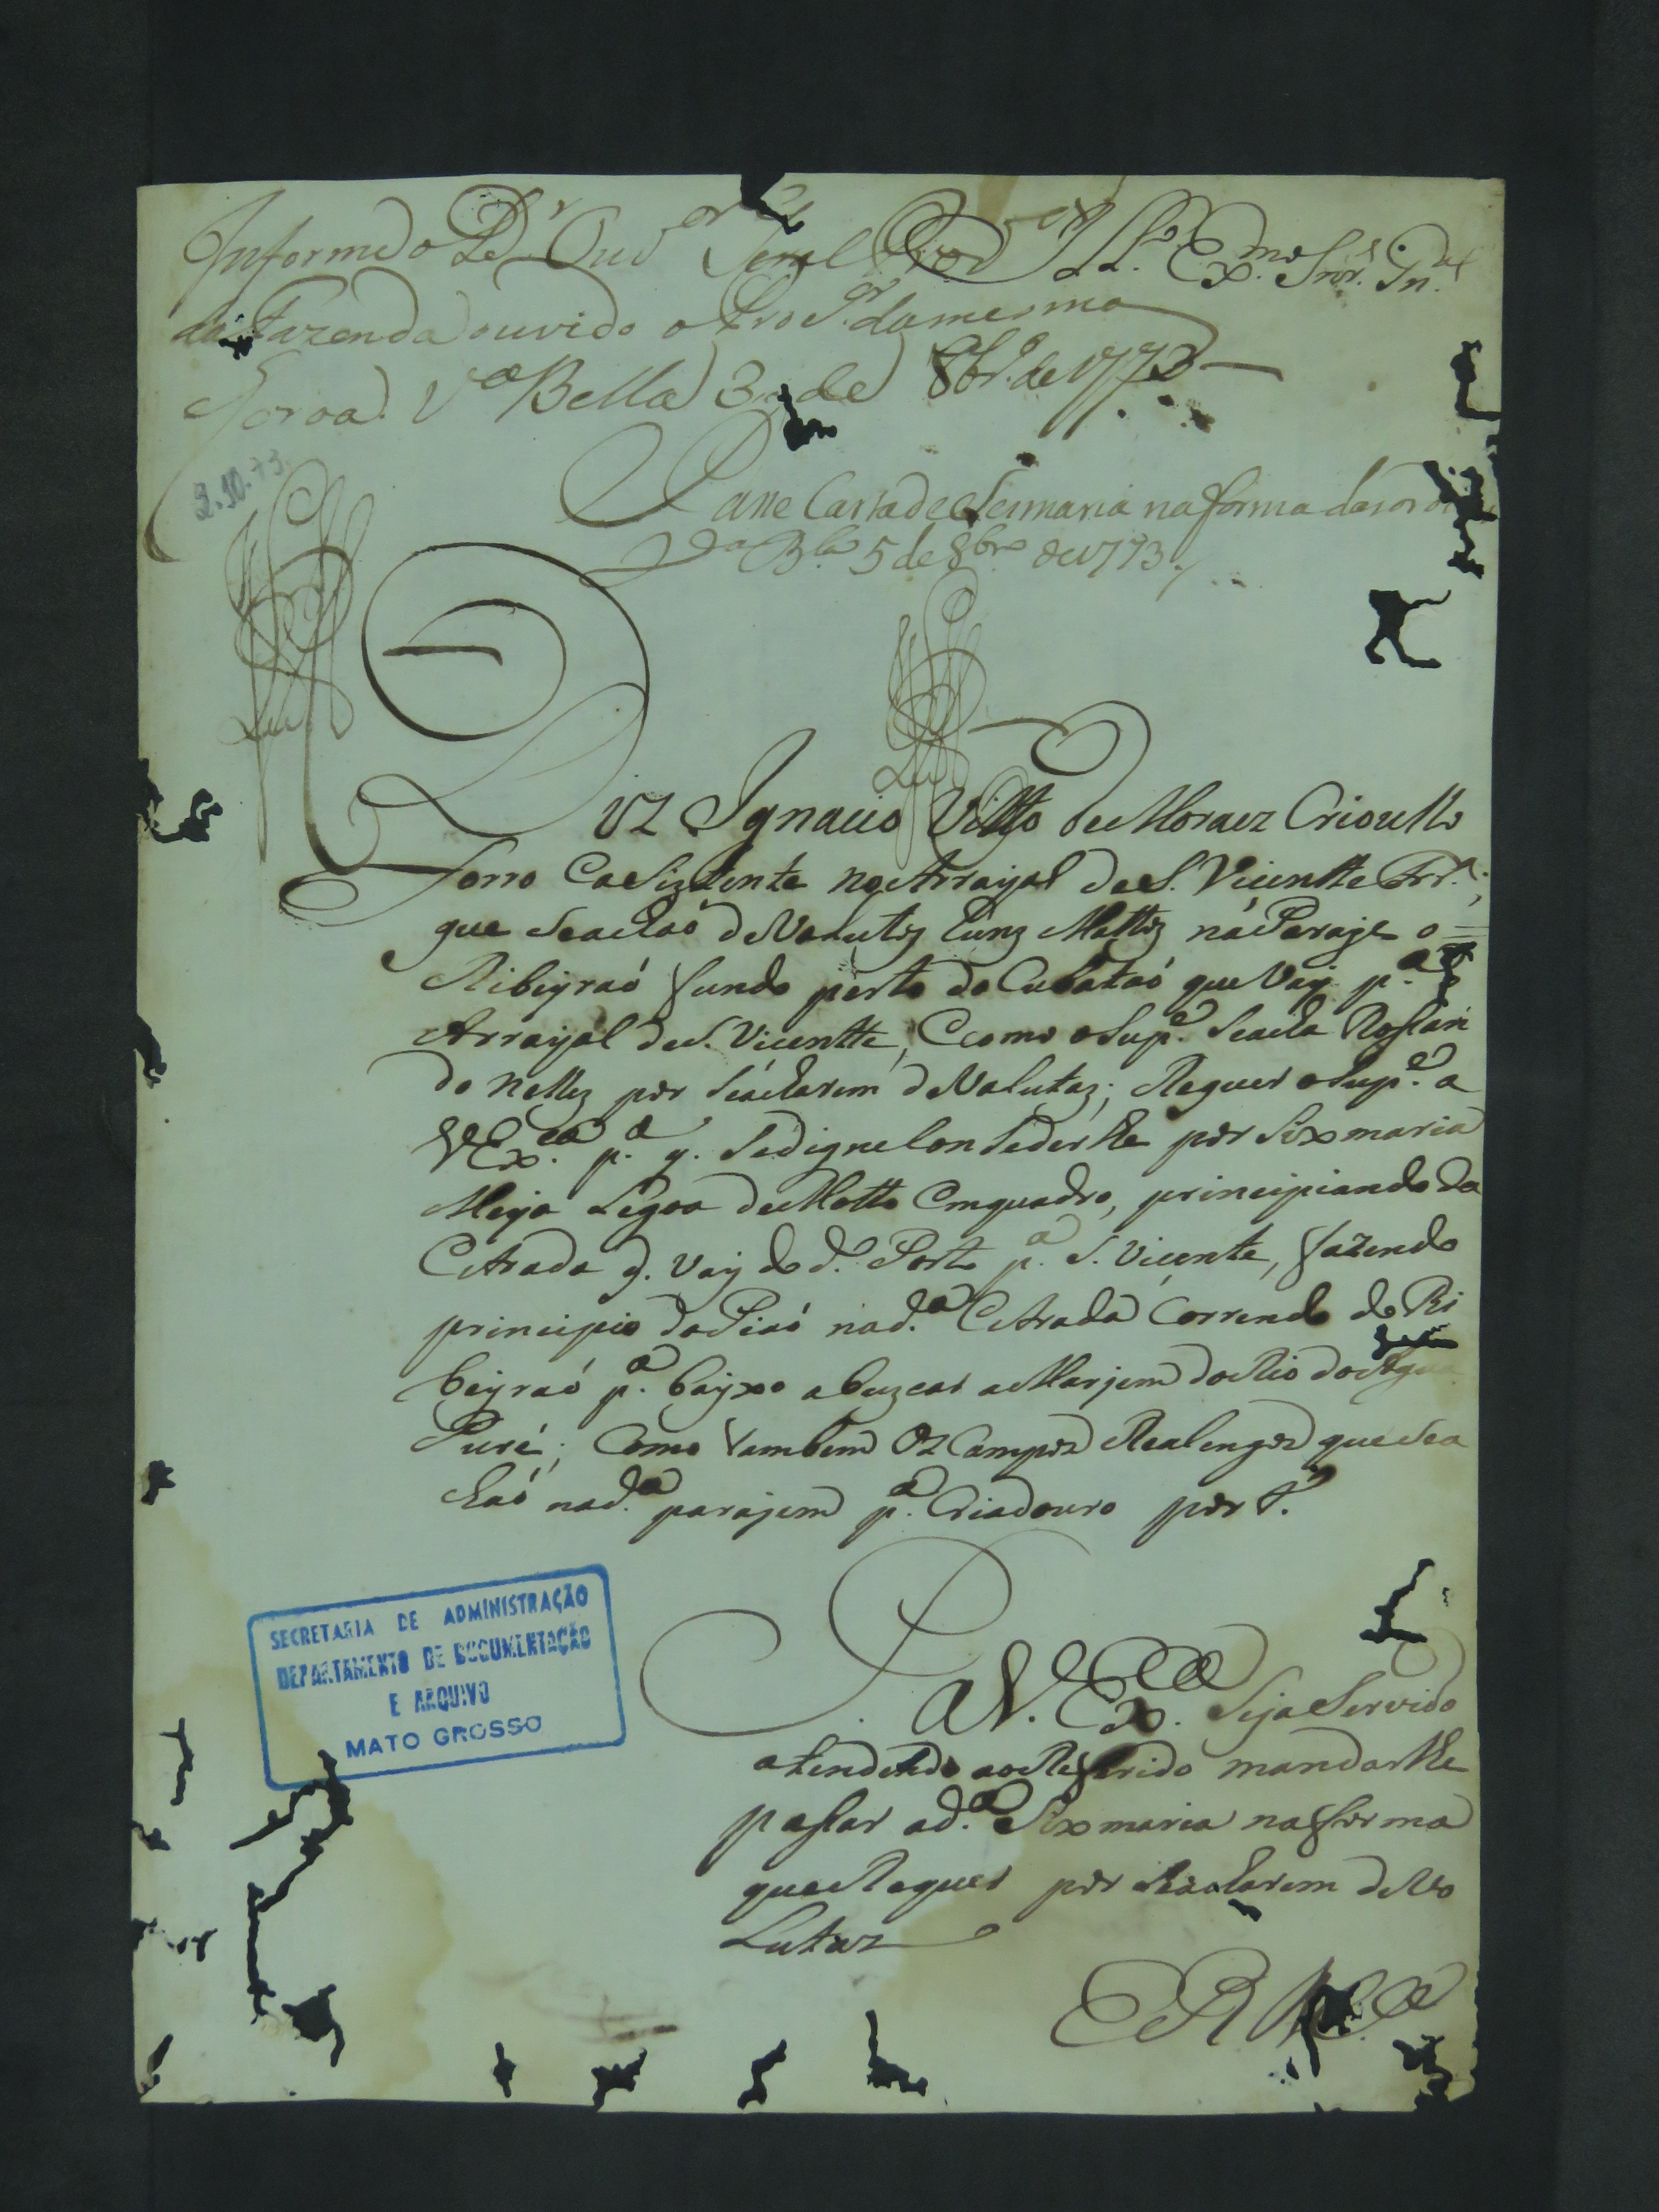 Informe o Dr. Ouvor Geral Provor Ill.º Ex.mo Snr. Gn.al
da Fazenda ouvido o Procor da mesma
Coroa. Va Bella 3 de 8br.º de 1773
2.10.73
Passe Carta de Sesmaria na forma das
Va Bla 5 de 8bro de 1773
Diz Ignacio de Moraez Crioullo
forro no Arrayal de S. Vicentte
que Seachaó de Volutoz Mattoz
Ribeyraó fundo perto do Cubataó que Vay p.a
Arrayal de S. Vicentte, Ecomo o Sup.e Seacha
do nellez por Seácharem de Volutaz; Requer o Sup.e a
V Ex.ca p.a q. Sedigne Conseder lhe por Sixmaria
Meya Legoa de Matto Emquadro, principiando da
Estrada q. Vay do d.º Porto p.a S. Vicente, fazendo
principio do Piaó nad.a Estrada Correndo do Ri
beyraó p.a bayxo abuzcar a Marjem do Rio do Agua
Puré; Como tambem Oz Campoz Realengoz que Sea
chaó nad.a parájem p.a Criadouro por t.º
P. a V. Ex.ca Seja Servido
atendendo ao Referido mandar lhe
passar ad.a Sixmaria na forma
que Requer por Seacharem de Vo
Lutaz
E R M.ce
SECRETARIA DE ADMINISTRAÇÃO
DEPARTAMENTO DE DOCUMENTAÇÃO
E ARQUIVO
MATO GROSSO